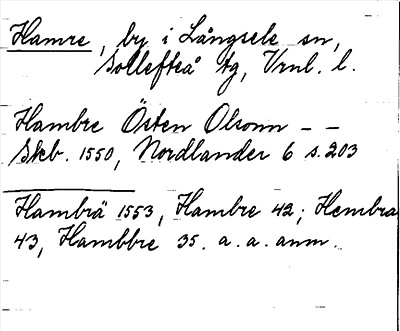 Hamre, by i Långsele sn,
Sollefteå tg, Vrnl. l.
Hambre Östen Olsonn - -
Skb. 1550, Nordlander 6 s. 203
Hambrä 1553, Hambre 42; Hembra
43, Hambbre 35. a. a. anm.